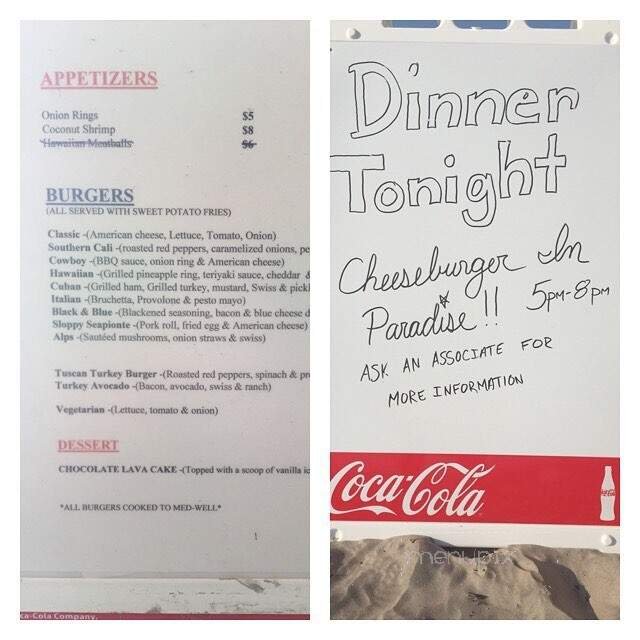 APPETIZERS
Onion Rings $5
Coconut Shrimp $8
Hawaiian Meatballs $6
BURGERS
(ALL SERVED WITH SWEET POTATO FRIES)
Classic -(American cheese, Lettuce, Tomato, Onion)
Southern Cali -(roasted red peppers, caramelized onions, pe
Cowboy -(BBQ sauce, onion ring & American cheese)
Hawaiian -(Grilled pineapple ring, teriyaki sauce, cheddar &
Cuban -(Grilled ham, Grilled turkey, mustard, Swiss & pickl
Italian -(Bruchetta, Provolone & pesto mayo)
Black & Blue -(Blackened seasoning, bacon & blue cheese d
Sloppy Seapionte -(Pork roll, fried egg & American cheese)
Alps -(Sautéed mushrooms, onion straws & swiss)
Tuscan Turkey Burger -(Roasted red peppers, spinach & pr
Turkey Avocado -(Bacon, avocado, swiss & ranch)
Vegetarian -(Lettuce, tomato & onion)
DESSERT
CHOCOLATE LAVA CAKE -(Topped with a scoop of vanilla ic
*ALL BURGERS COOKED TO MED-WELL*
1
ca-Cola Company.
Dinner
Tonight
Cheeseburger In
Paradise!! 5pm-8pm
ASK AN ASSOCIATE FOR
MORE INFORMATION
Coca-Cola
menupix